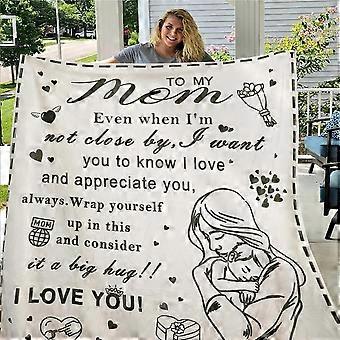 TO MY
Mom
Even when I'm
not close by, I want
you to know I love
and appreciate you,
always. Wrap yourself
up in this
MOM
and consider
it a big hug!!
I LOVE YOU!